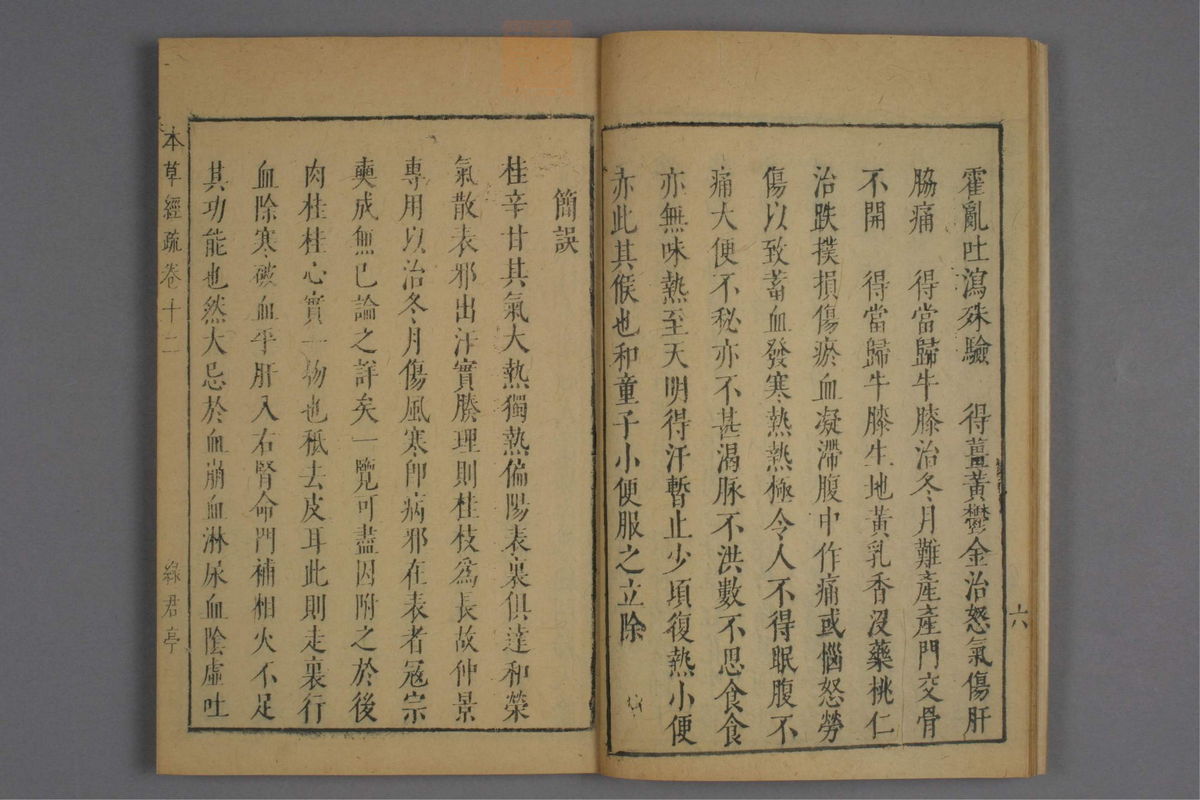 霍亂吐瀉殊驗　得薑黃鬱金治怒氣傷肝
脇痛　得當歸牛膝治冬月難產產門交骨
不開　得當歸牛膝生地黃乳香沒藥桃仁
治跌撲損傷瘀血凝滯腹中作痛或惱怒勞
傷以致蓄血發寒熱熱極令人不得眠腹不
痛大便不秘亦不甚渴脉不洪數不思食食
亦無味熱至天明得汗暫止少頃復熱小便
亦此其候也和童子小便服之立除
六
簡誤
桂辛甘其氣大熱獨熱偏陽表裏俱達和榮
氣散表邪出汗實腠理則桂枝爲長故仲景
專用以治冬月傷風寒卽病邪在表者冦宗
奭成無已論之詳矣一覽可盡因附之於後
肉桂桂心實一物也秪去皮耳此則走裏行
血除寒破血平肝入右腎命門補相火不足
其功能也然大忌於血崩血淋尿血陰虛吐
本草經疏卷十二
綠君亭